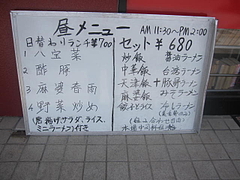 昼メニュー AM 11:30~PM 2:00
日替わりランチ ¥700
1 八宝菜
2 酢豚
3 麻婆春雨
4 野菜炒め
(唐揚げ、サラダ、ライス、
ミニラーメン)付き
セット ¥680
炒飯 醤油ラーメン
中華飯 台湾ラーメン
天津飯 + 豚骨ラーメン
麻婆飯
冷しラーメン